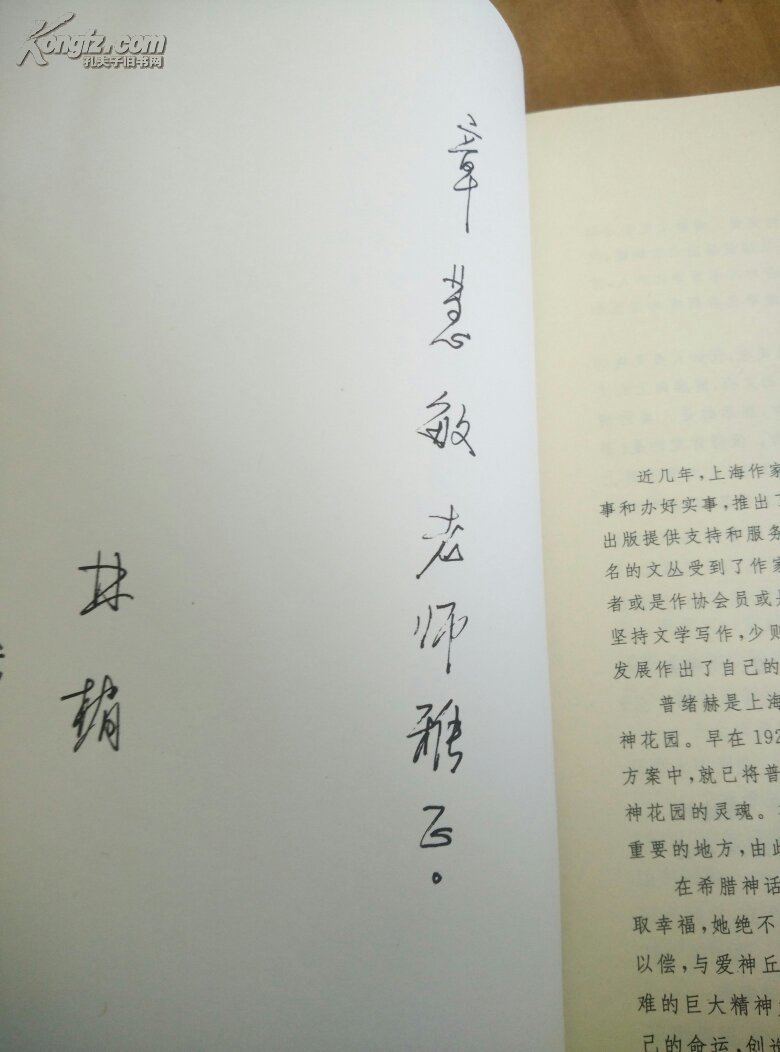 Kongfz.com
孔夫子旧书网
章慧敏老师雅正。
林
近几年，上海作家
事和办好实事，推出了
出版提供支持和服务
名的文丛受到了作家
者或是作协会员或是
坚持文学写作，少则
发展作出了自己的
普绪赫是上海
神花园。早在192
方案中，就已将普
神花园的灵魂。
重要的地方，由此
在希腊神话
取幸福，她绝不
以偿，与爱神丘
难的巨大精神
己的命运，创造